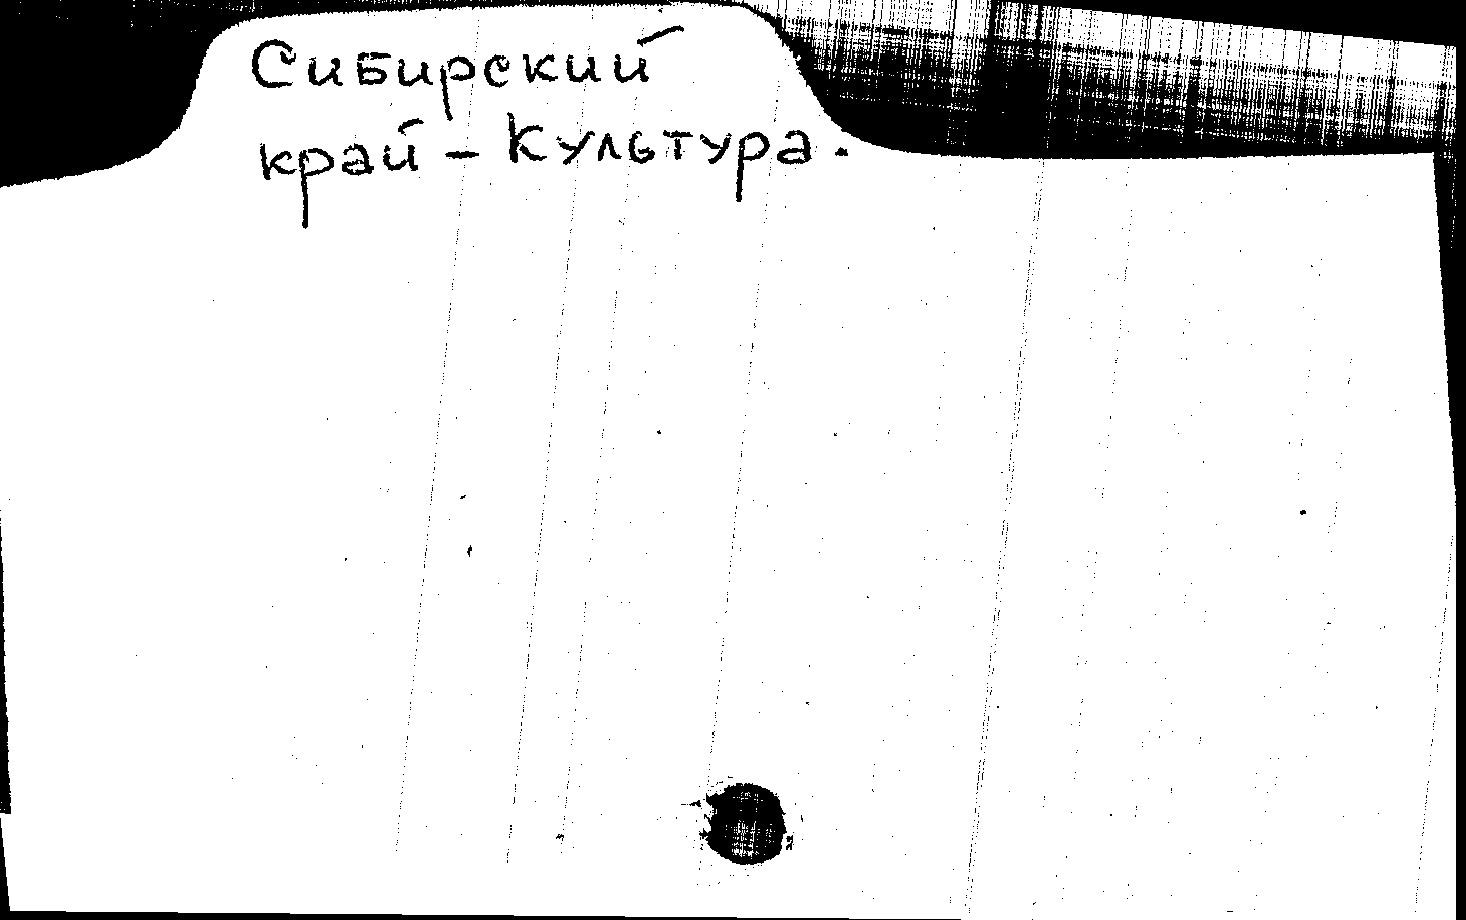 Сибирский
край - Культура.